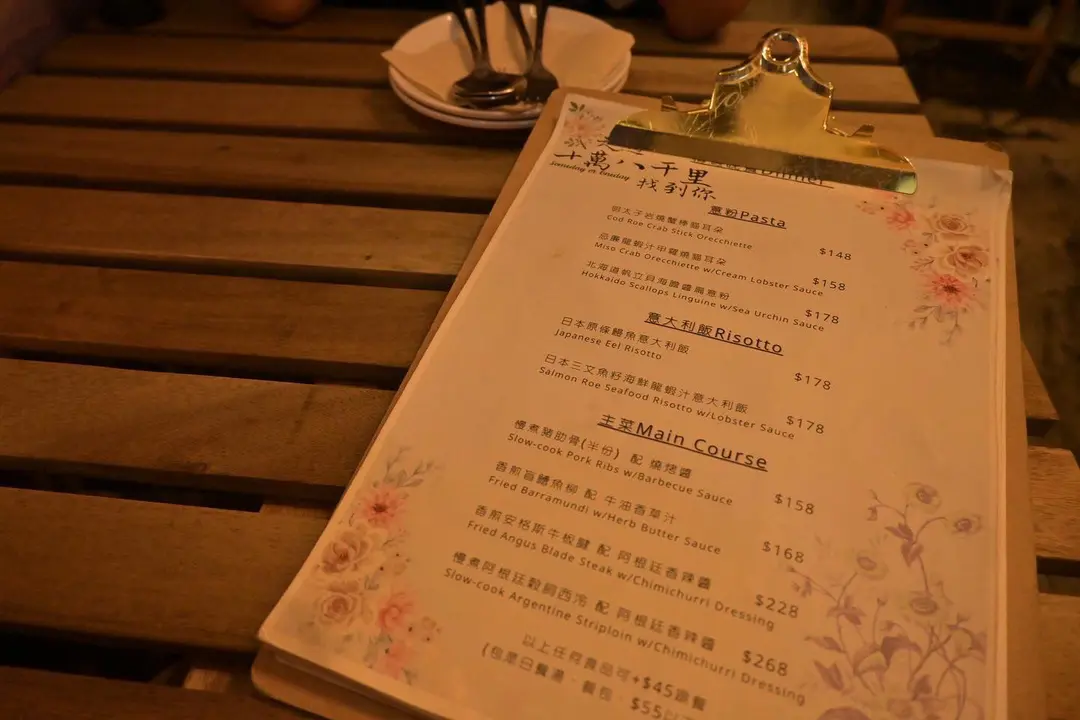 十萬八千里
someday or oneday
找到你
Dinner
意粉Pasta
明太子岩燒蟹棒貓耳朵
Cod Roe Crab Stick Orecchiette
$148
龍蝦汁甲羅燒貓耳朵
Miso Crab Orecchiette w/Cream Lobster Sauce
$158
北海道帆立貝海膽醬扁意粉
Hokkaido Scallops Linguine w/Sea Urchin Sauce
$178
意大利飯Risotto
日本原條鰻魚意大利飯
Japanese Eel Risotto
$178
日本三文魚籽海鮮龍蝦汁意大利飯
Salmon Roe Seafood Risotto w/Lobster Sauce
$178
主菜Main Course
慢煮豬肋骨(半份) 配 燒烤醬
Slow-cook Pork Ribs w/Barbecue Sauce
$158
香煎盲鰽魚柳 配 牛油香草汁
Fried Barramundi w/Herb Butter Sauce
$168
香煎安格斯牛板腱 配 阿根廷香辣醬
Fried Angus Blade Steak w/Chimichurri Dressing
$228
慢煮阿根廷穀飼西冷 配 阿根廷香辣醬
Slow-cook Argentine Striploin w/Chimichurri Dressing
$268
以上任何食品可+$45跟餐
(包是日餐湯、餐包,$55以